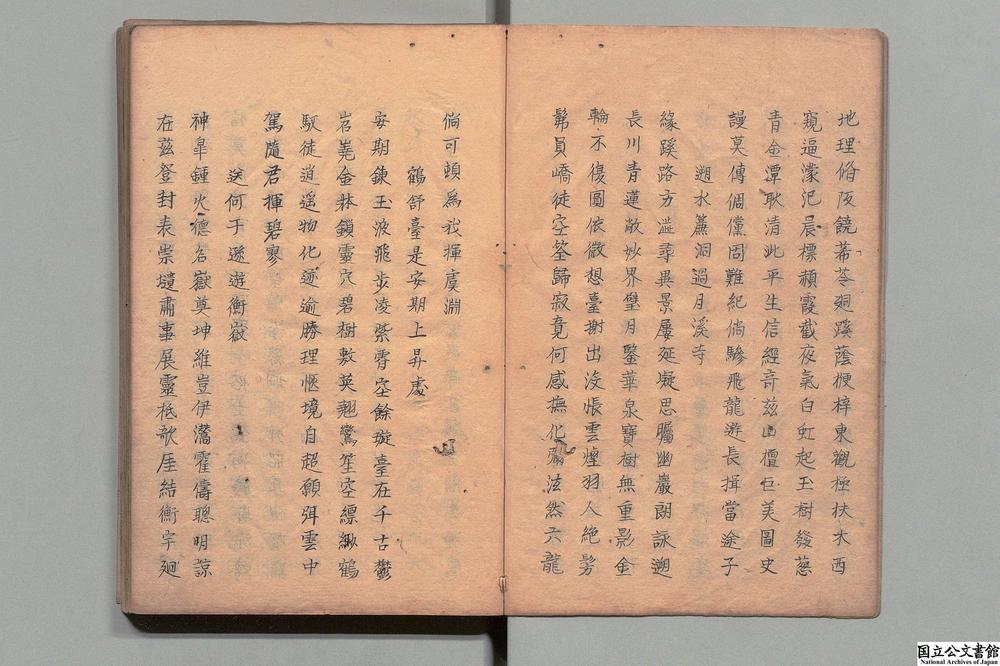 地理脩阪饒莃苓廻蹊蔭梗梓東觀極扶木西
窺逼濛汜晨標頳霞截夜氣白虹起玉樹發蔥
青金潭耿清此平生信經奇茲山檀巨美圖史
謾莫傳倜儻固難紀倘驂飛龍游長揖當途子
遡水簾洞過月溪寺
緣蹊路方澁尋異景屢延凝思矚幽巖朗詠遡
長川青蓮敞妙界璧月鑒華泉寶樹無重影金
輪不復圓依微想臺榭出没悵雲煙羽人絶髣
髴員嶠徒空筌歸寂竟何感撫化𩀱泫然六龍
倘可頓為我揮虞淵
鶴舒臺是安期上昇處
安期鍊玉液飛步凌紫霄空餘璇臺在千古鬱
岧嶤金牀鎖靈穴碧樹敷英翹鸞笙空縹緲鶴
馭徒逍遥物化逐逾勝理愜境自超願弭雲中
駕隨君揮碧寥
送何于遜遊衡嶽
神皐鍾火德名嶽奠坤維豈伊灊霍儔聰明諒
在茲登封表崇壝肅事展靈祗歌厓結衡宇廻
国立公文書館
National Archives of Japan